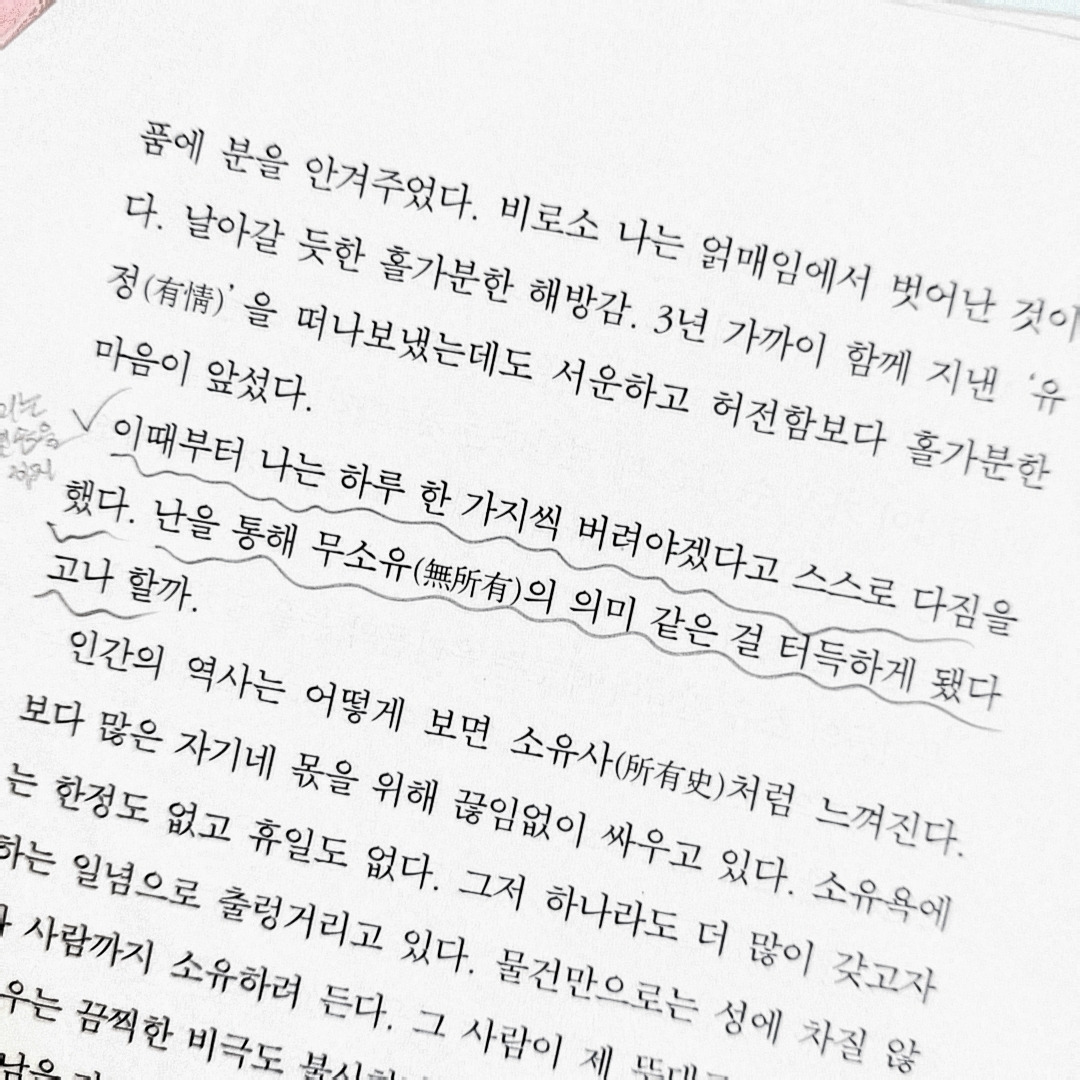 품에 분을 안겨주었다. 비로소 나는 얽매임에서 벗어난 것이
다. 날아갈 듯한 홀가분한 해방감. 3년 가까이 함께 지낸 ‘유
정(有情)’을 떠나보냈는데도 서운하고 허전함보다 홀가분한
마음이 앞섰다.
이때부터 나는 하루 한 가지씩 버려야겠다고 스스로 다짐을
했다. 난을 통해 무소유(無所有)의 의미 같은 걸 터득하게 됐다
고나 할까.
인간의 역사는 어떻게 보면 소유사(所有史)처럼 느껴진다.
보다 많은 자기네 몫을 위해 끊임없이 싸우고 있다. 소유욕에
는 한정도 없고 휴일도 없다. 그저 하나라도 더 많이 갖고자
하는 일념으로 출렁거리고 있다. 물건만으로는 성에 차질 않
사람까지 소유하려 든다. 그 사람이 제
우는 끔찍한 비극도